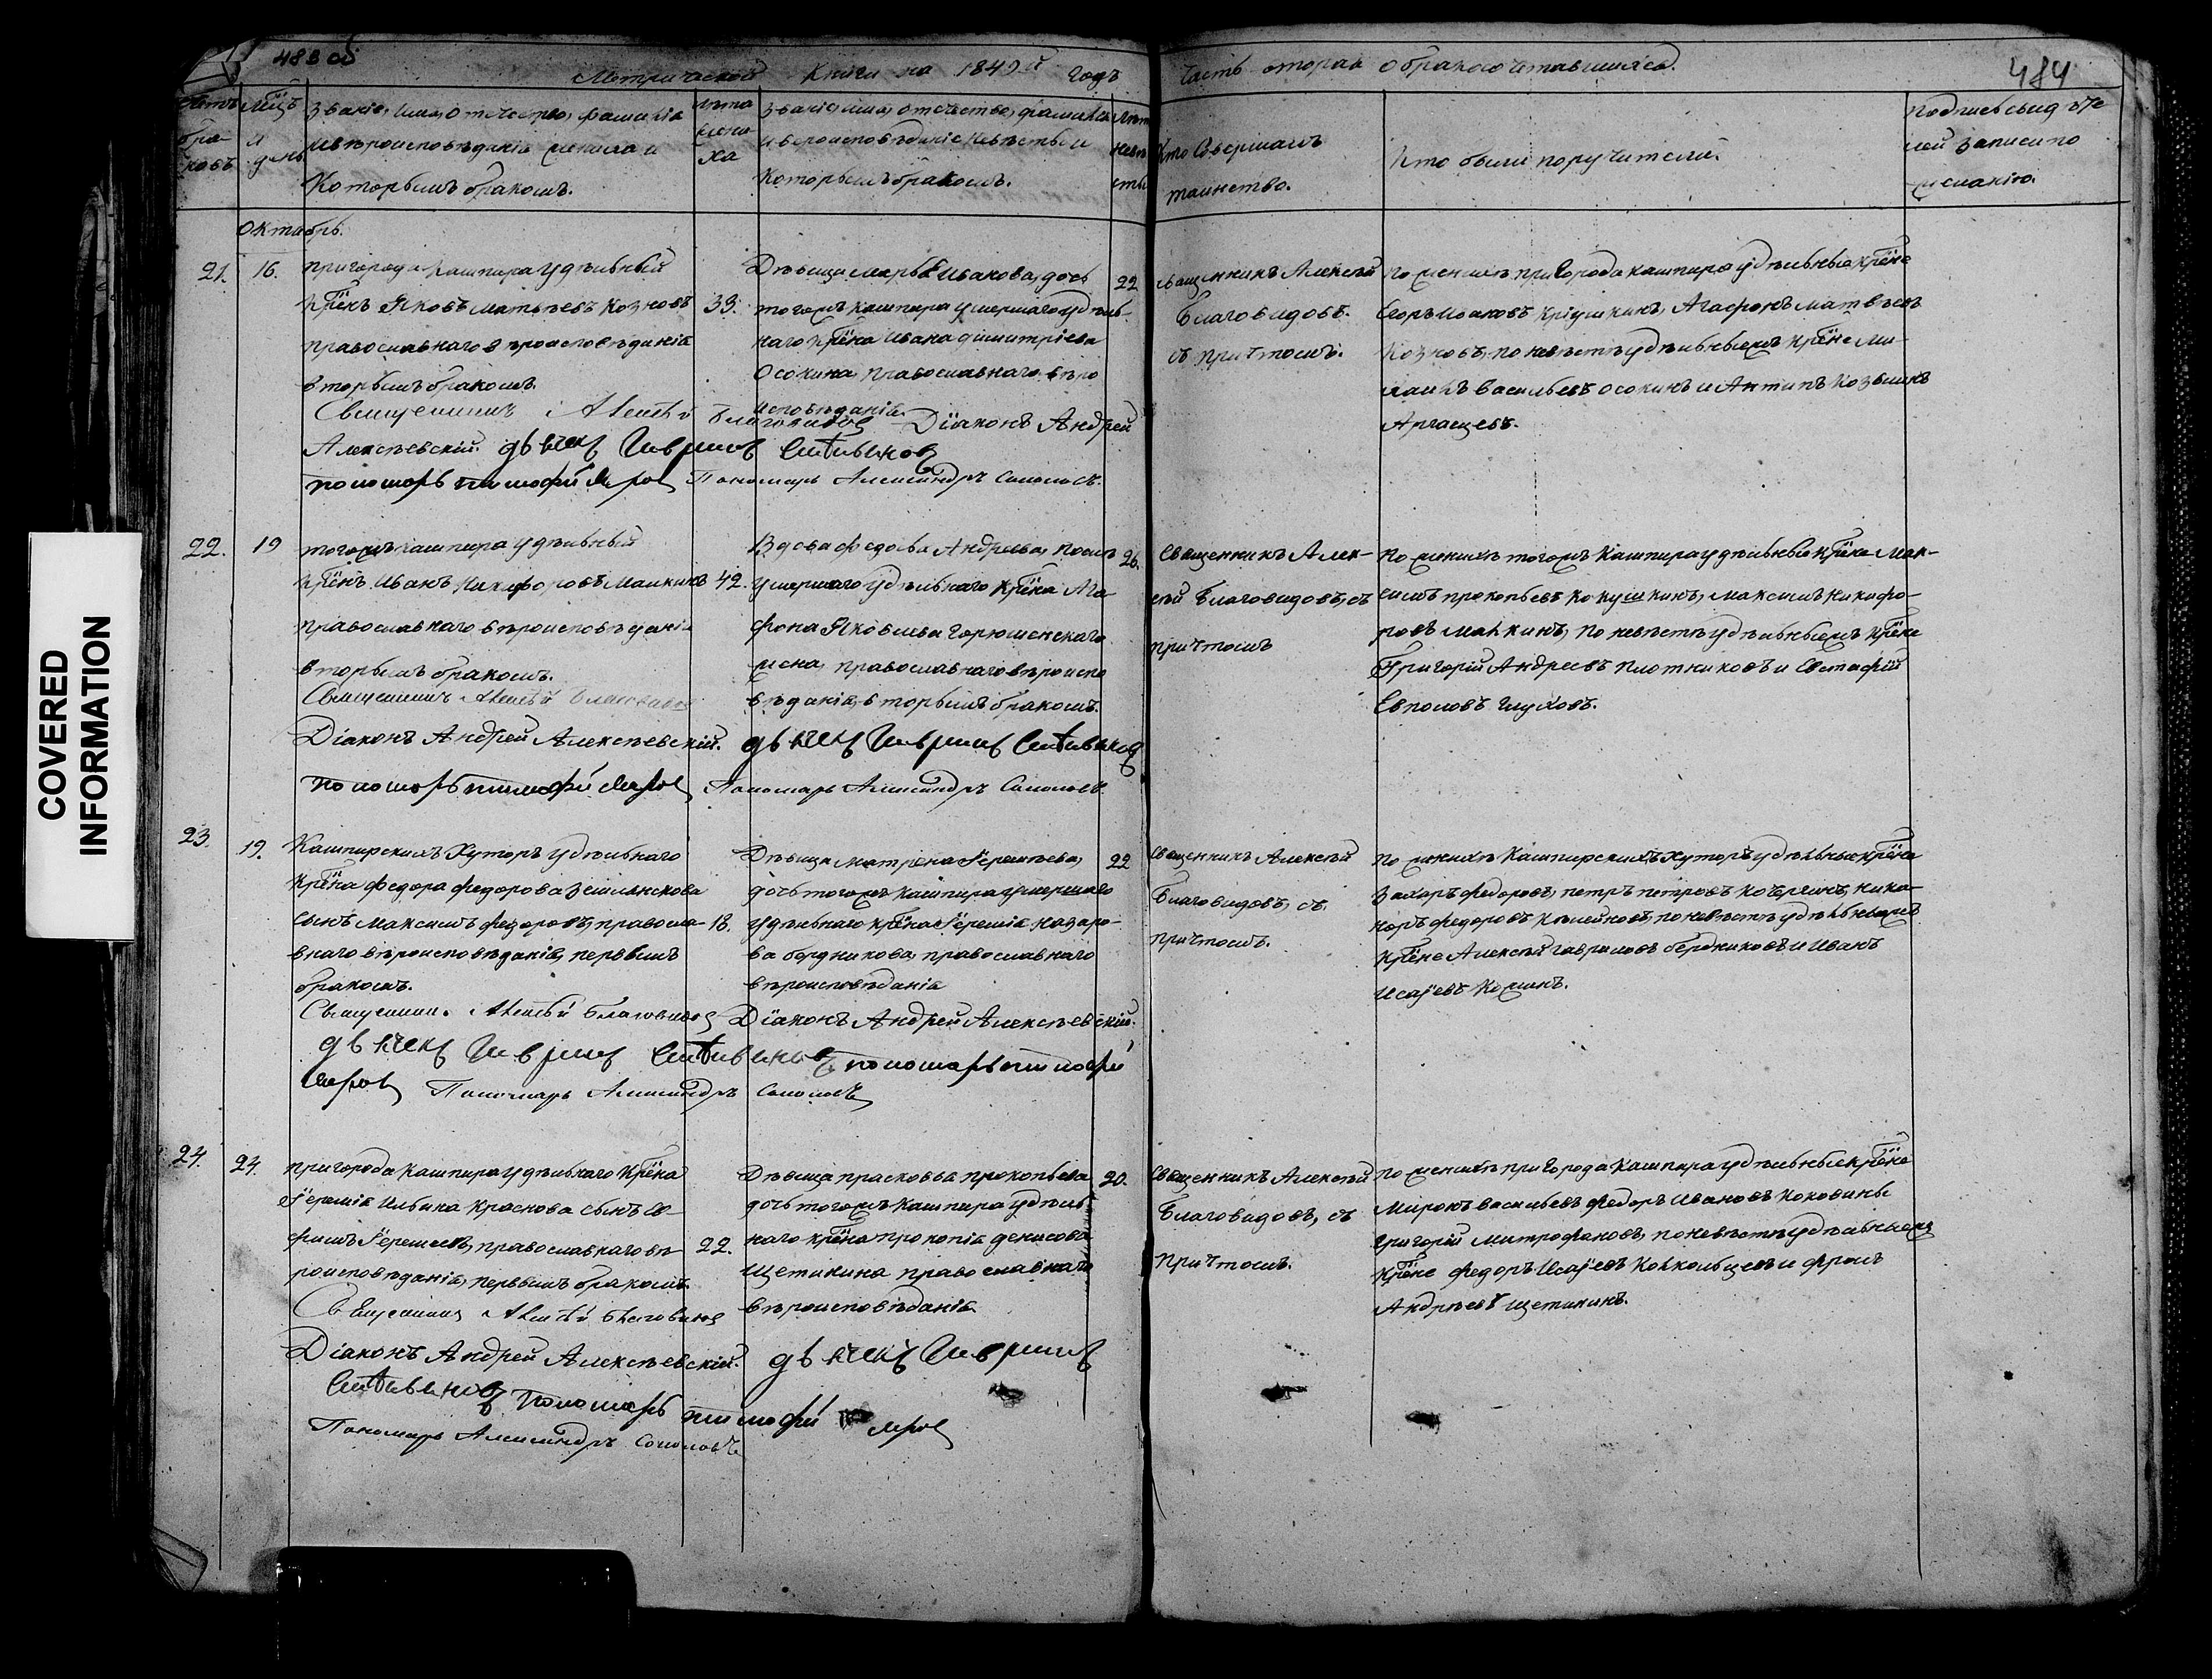 483 об
Метрической Книги на 1849й годъ
Часть вторая о бракосочетавшихся.
484
Счетъ браковъ
Мцъ и день
Званіе, имя, отчество, фамилія
и вѣроисповѣданіе жениха и
которымъ бракомъ.
лѣта жениха
Званіе, имя, отчество, фамилія
и вѣроисповѣданіе невѣсты и
которымъ бракомъ.
лѣта невѣсты
Кто совершалъ
таинство.
Кто были поручители.
Подпись свидѣте
лей записи по
желанію.
Октябрь.
21.
16.
пригорода Кашпира удѣльный
крѣнъ Яковъ Матвѣевъ Козновъ
православнаго вѣроисповѣданія
вторымъ бракомъ.
33.
Дѣвица Марья Иванова, дочь
тогожъ Кашпира умершаго удѣль-
наго крѣна Ивана Димитріева
Осокина, православнаго вѣро
исповѣданія.
22
священникъ Алексѣй
Благовидовъ.
съ причтомъ.
По женихѣ пригорода Кашпира удѣльные крѣне
Егоръ Исаковъ Кріушкинъ, Агафонъ Матвѣевъ
Козновъ, по невѣстѣ удѣльныежъ крѣне Ми-
хаилъ Васильевъ Осокинъ и Антипъ Козьминъ
Аргасцевъ.
Священникъ Алексѣй Благовидов Діаконъ Андрей
Алексѣевскій. дьячек Гаврила Ситивков
пономарь тимофѣй Пономарь Александръ Соколовъ.
22.
19
тогожъ Кашпира удѣльный
крѣнъ Иванъ Никифоровъ Малкинъ
православнаго вѣроисповѣданія
вторымъ бракомъ.
42.
Вдова Федосья Андреева, послѣ
умершаго удѣльнаго крѣна Ага-
фона Яковлева Горюшенскаго
жена, православнаго вѣроиспо
вѣданія, вторымъ бракомъ.
26.
Священникъ Алек-
сѣй Благовидовъ, съ
причтомъ
По женихѣ тогожъ Кашпира удѣльные крѣне Мак-
симъ Прокопьевъ Кокушкинъ, Максимъ Никифо-
ровъ Малкинъ, по невѣстѣ удѣльныежъ крѣне
Григорій Андреевъ Плотниковъ и Евстафій
Евполовъ Глуховъ.
Священникъ Алексѣй Благовидов
Діаконъ Андрей Алексѣевскій. дьячек Гаврила Ситивков
пономарь тимофѣй Пономарь Александръ Соколовъ
23.
19.
Кашпирскихъ Хуторъ удѣльнаго
крѣна Федора Федорова Землянскова
сынъ Максимъ Федоровъ, правосла-
внаго вѣроисповѣданія, первымъ
бракомъ.
18.
Дѣвица Матрена Іеремѣева,
дочь тогожъ Кашпира умершаго
удѣльнаго крѣна Іереміи Назаро-
ва Бердникова, православнаго
вѣроисповѣданія
22
Священникъ Алексѣй
Благовидовъ, съ.
причтомъ.
По женихѣ Кашпирскихъ Хуторъ удѣльные крѣне
Захаръ Федоровъ, Петръ Петровъ Кочергинъ, Ника-
норъ Федоровъ Клейновъ, по невѣстѣ удѣльныежъ
крѣне Алексѣй Гавриловъ Бердниковъ и Иванъ
Исаіевъ Коминъ.
Священник. Алексѣй Благовидов Діаконъ Андрей Алексѣевскій.
дьячек Гаврила Ситивков пономарь тимофѣй
Пономарь Александръ Соколовъ
24.
24.
пригорода Кашпира удѣльнаго крѣна
Іереміи Ильина Краснова сынъ Е-
фимъ Іеремеевъ, православнаго вѣ-
роисповѣданія, первымъ бракомъ.
22.
Дѣвица Прасковья Прокопьева
дочь тогожъ Кашпира удѣль
наго крѣна Прокопія Денисова
Щетинина православнаго
вѣроисповѣданія.
20.
Священникъ Алексѣй
Благовидовъ, съ
причтомъ.
По женихѣ пригорода Кашпира удѣльные крѣне
Миронъ Васильевъ Федоръ Ивановъ Коковины
Григорій Митрофановъ, по невѣстѣ удѣльныежъ
крѣне Федоръ Исаіевъ Колкольцевъ и Фролъ
Андрѣевъ Щетининъ.
Священник Алексѣй Благовидов
Діаконъ Андрей Алексѣевскій. дьячек Гаврила
Ситивков пономарь тимофѣй
Пономарь Александръ Соколовъ
COVERED
INFORMATION